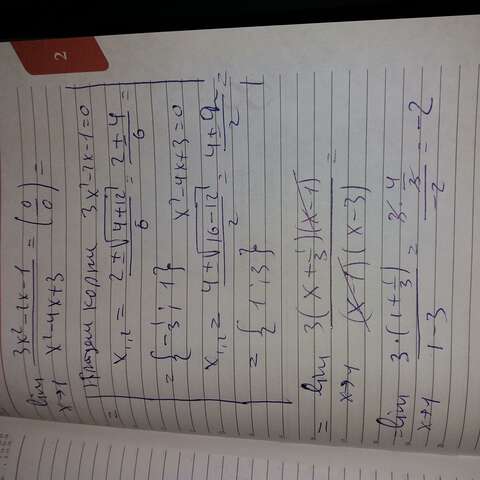 2
lim x→1 (3x²-2x-1)/(x²-4x+3) = (0/0) =
= Найдем корни 3x²-2x-1=0
x₁,₂ = (2±√(4+12))/6 = (2±4)/6 =
= {-1/3; 1} x²-4x+3=0
x₁,₂ = (4±√(16-12))/2 = (4±2)/2 =
= {1; 3}
= lim x→1 (3(x+1/3)(x-1))/((x-1)(x-3)) =
= lim x→1 (3·(1+1/3))/(1-3) = (3·4/3)/(-2) = -2